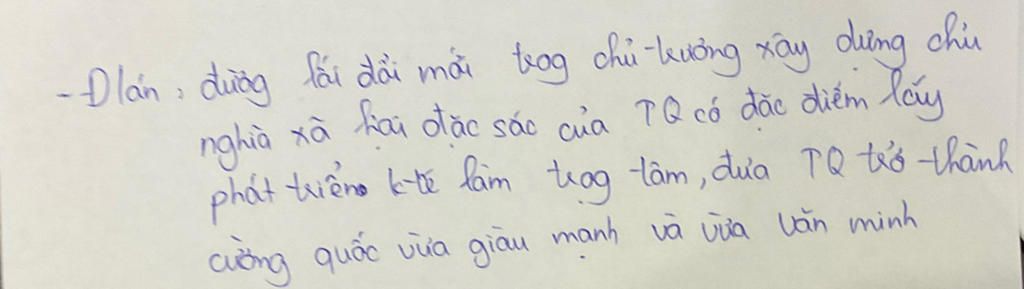 - Đlán: đường lối đổi mới trog chủ-trương xây dựng chủ
nghĩa xã hội đặc sắc của TQ có đặc điểm lấy
phát triển k-tế làm trọg tâm, đưa TQ trở thành
cường quốc vừa giàu mạnh và vừa văn minh